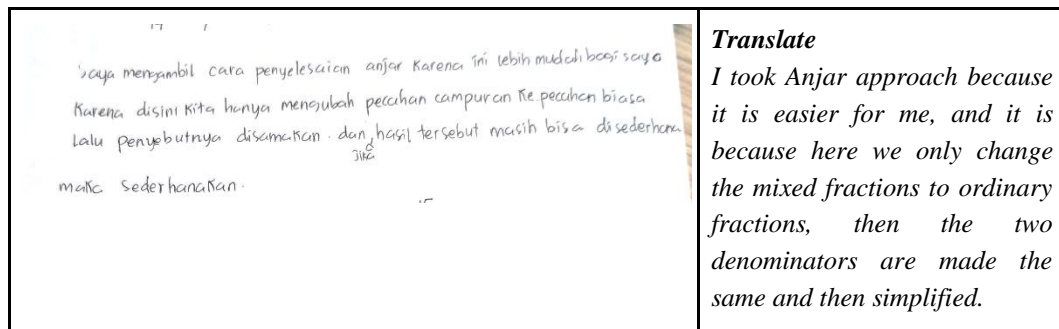 saya mengambil cara penyelesaian anjar Karena ini lebih mudah bagi saya
Karena disini Kita hanya mengubah pecahan campuran Ke pecahan biasa
Lalu penyebutnya disamakan. dan hasil tersebut masih bisa disederhana
Jika
maka sederhanakan.
Translate
I took Anjar approach because
it is easier for me, and it is
because here we only change
the mixed fractions to ordinary
fractions, then the two
denominators are made the
same and then simplified.